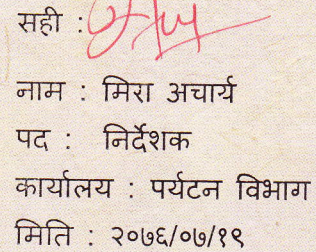 सही :
नाम : मिरा अचार्य
पद : निर्देशक
कार्यालय : पर्यटन विभाग
मिति : २०७६/०७/१९